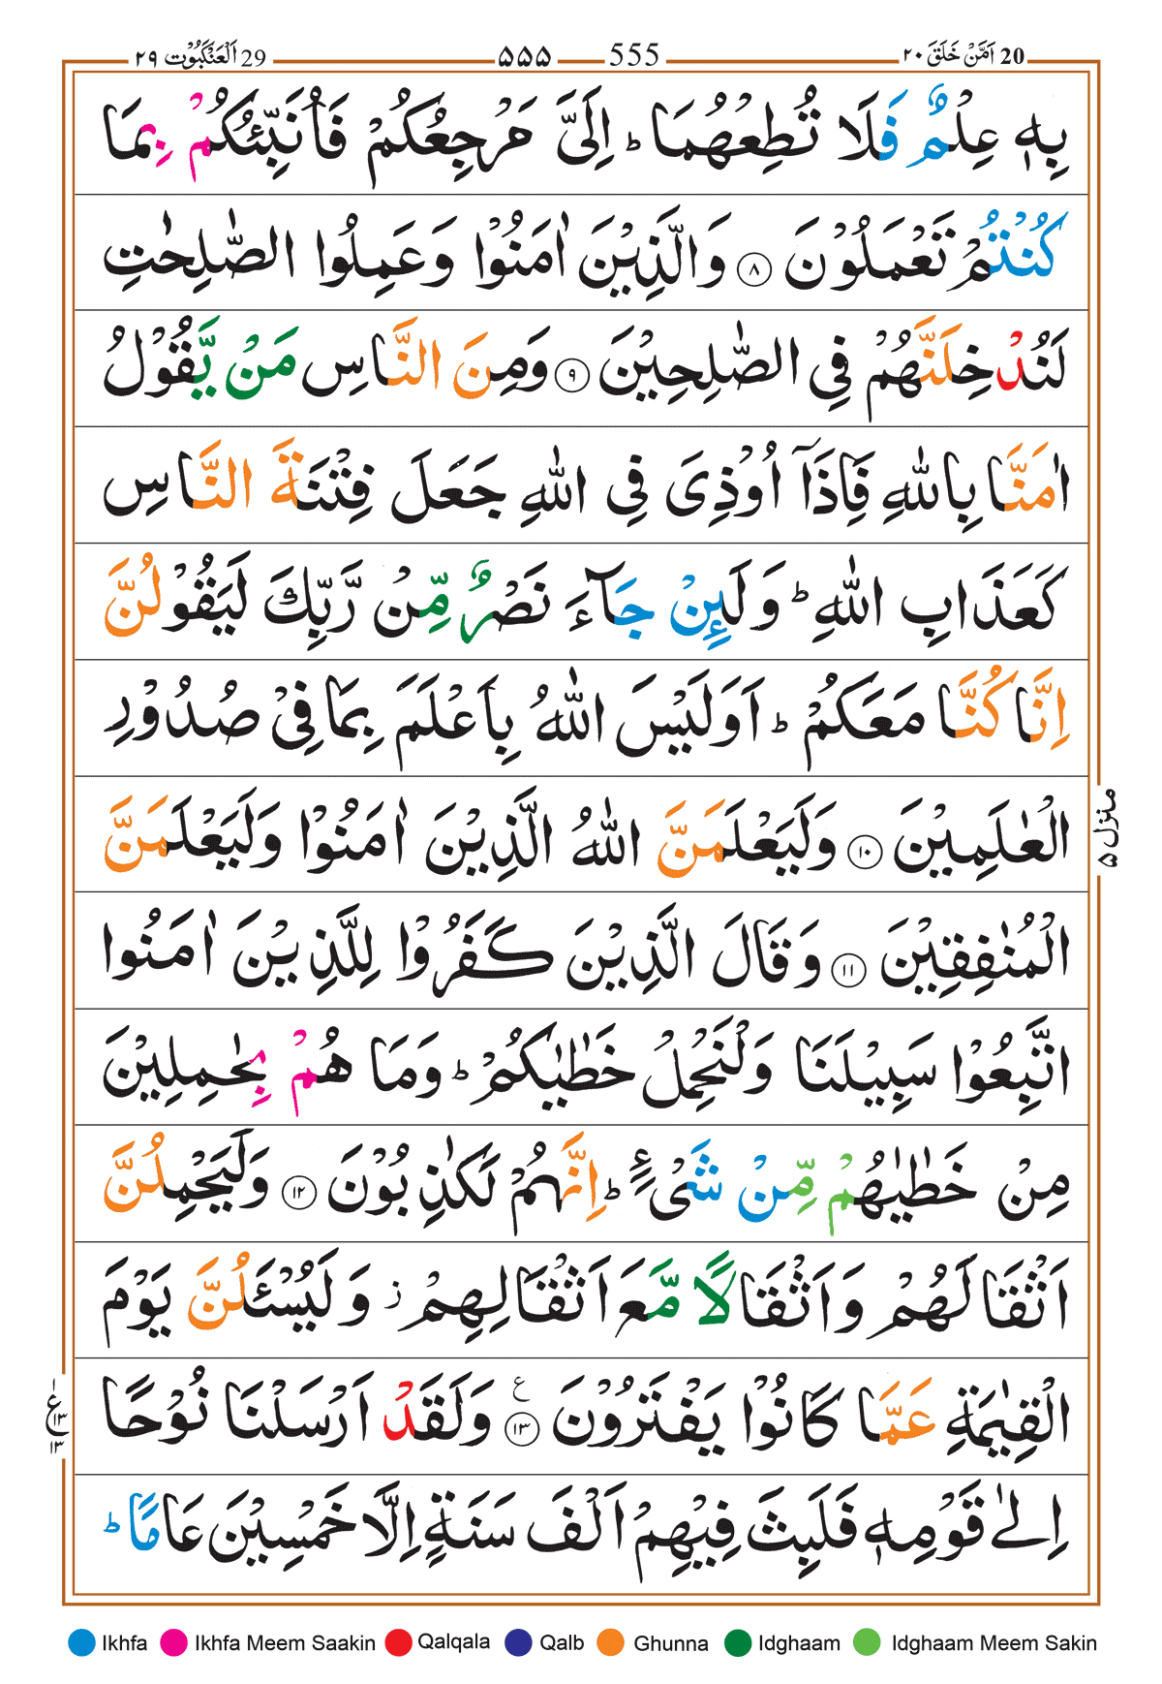 20 اَمَّنْ خَلَقَ ٢٠ 555 ۵۵۵ 29 اَلْعَنْكَبُوْت ٢٩
بِهٖ عِلْمٌ فَلَا تُطِعْهُمَا ؕ اِلَیَّ مَرْجِعُكُمْ فَاُنَبِّئُكُمْ بِمَا
كُنْتُمْ تَعْمَلُوْنَ ۝٨ وَالَّذِیْنَ اٰمَنُوْا وَعَمِلُوا الصّٰلِحٰتِ
لَنُدْخِلَنَّهُمْ فِی الصّٰلِحِیْنَ ۝٩ وَمِنَ النَّاسِ مَنْ یَّقُوْلُ
اٰمَنَّا بِاللّٰهِ فَاِذَاۤ اُوْذِیَ فِی اللّٰهِ جَعَلَ فِتْنَةَ النَّاسِ
كَعَذَابِ اللّٰهِ ؕ وَلَىِٕنْ جَآءَ نَصْرٌ مِّنْ رَّبِّكَ لَیَقُوْلُنَّ
اِنَّا كُنَّا مَعَكُمْ ؕ اَوَلَیْسَ اللّٰهُ بِاَعْلَمَ بِمَا فِیْ صُدُوْرِ
الْعٰلَمِیْنَ ۝١٠ وَلَیَعْلَمَنَّ اللّٰهُ الَّذِیْنَ اٰمَنُوْا وَلَیَعْلَمَنَّ
الْمُنٰفِقِیْنَ ۝١١ وَقَالَ الَّذِیْنَ كَفَرُوْا لِلَّذِیْنَ اٰمَنُوا
اتَّبِعُوْا سَبِیْلَنَا وَلْنَحْمِلْ خَطٰیٰكُمْ ؕ وَمَا هُمْ بِحٰمِلِیْنَ
مِنْ خَطٰیٰهُمْ مِّنْ شَیْءٍ ؕ اِنَّهُمْ لَكٰذِبُوْنَ ۝١٢ وَلَیَحْمِلُنَّ
اَثْقَالَهُمْ وَاَثْقَالًا مَّعَ اَثْقَالِهِمْ ز وَلَیُسْـَٔلُنَّ یَوْمَ
الْقِیٰمَةِ عَمَّا كَانُوْا یَفْتَرُوْنَ ۝١٣ ع وَلَقَدْ اَرْسَلْنَا نُوْحًا
اِلٰی قَوْمِهٖ فَلَبِثَ فِیْهِمْ اَلْفَ سَنَةٍ اِلَّا خَمْسِیْنَ عَامًا ؕ
منزل ۵
١ ع ١٣ ١٣
Ikhfa Ikhfa Meem Saakin Qalqala Qalb Ghunna Idghaam Idghaam Meem Sakin